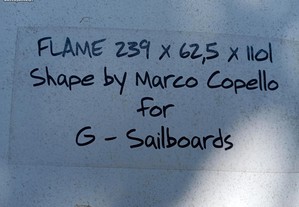 FLAME 239 x 62,5 x 110l
Shape by Marco Copello
for
G - Sailboards